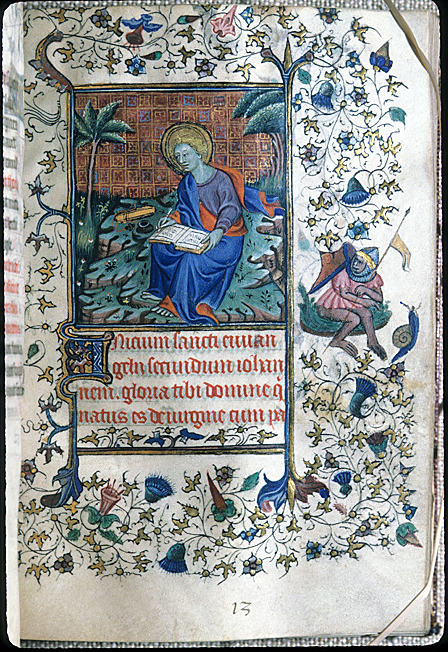 Nicium sancti euuan
gelii secundum iohan
nem. gloria tibi domine q̄
natus es de uirgine cum pa
13